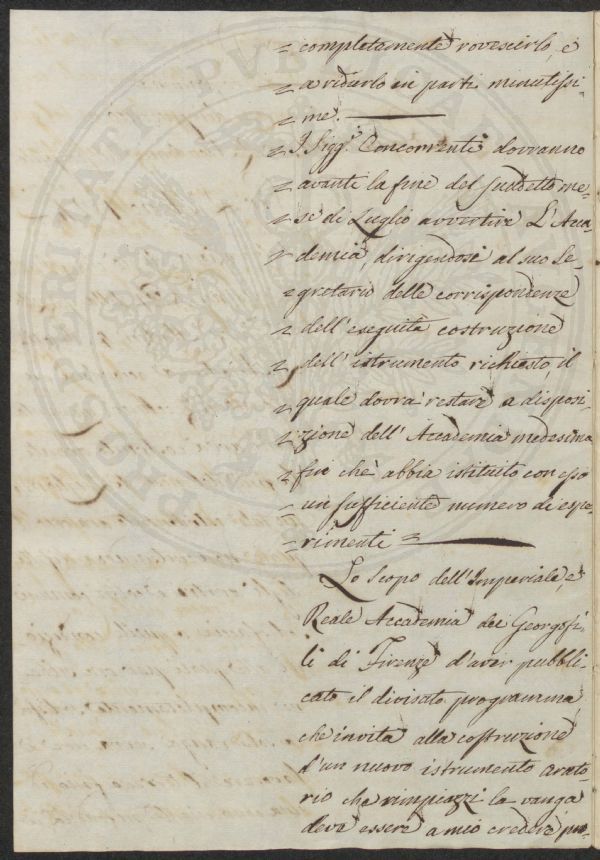 = completamente rovescirlo, e
= a ridurlo in parti minutissi-
= me.
= I Sigg.ri Concorrenti dovranno
= avanti la fine del suddetto me-
= se di Luglio avvertire L'Acca-
= demia, dirigendosi al suo Se-
= gretario delle corrispondenze
= dell'eseguita costruzione
= dell'istrumento richiesto, il
= quale dovrà restare a disposi-
= zione dell'Accademia medesima
= fin chè abbia istituito con esso
= un sufficiente numero di espe-
= rimenti =
Lo Scopo dell'Imperiale, e
Reale Accademia dei Georgofi-
li di Firenze d'aver pubbli-
cato il divisato programma,
che invita alla costruzione
d'un nuovo istrumento arato-
rio che rimpiazzi la vanga
deve essere a mio credere
PVB